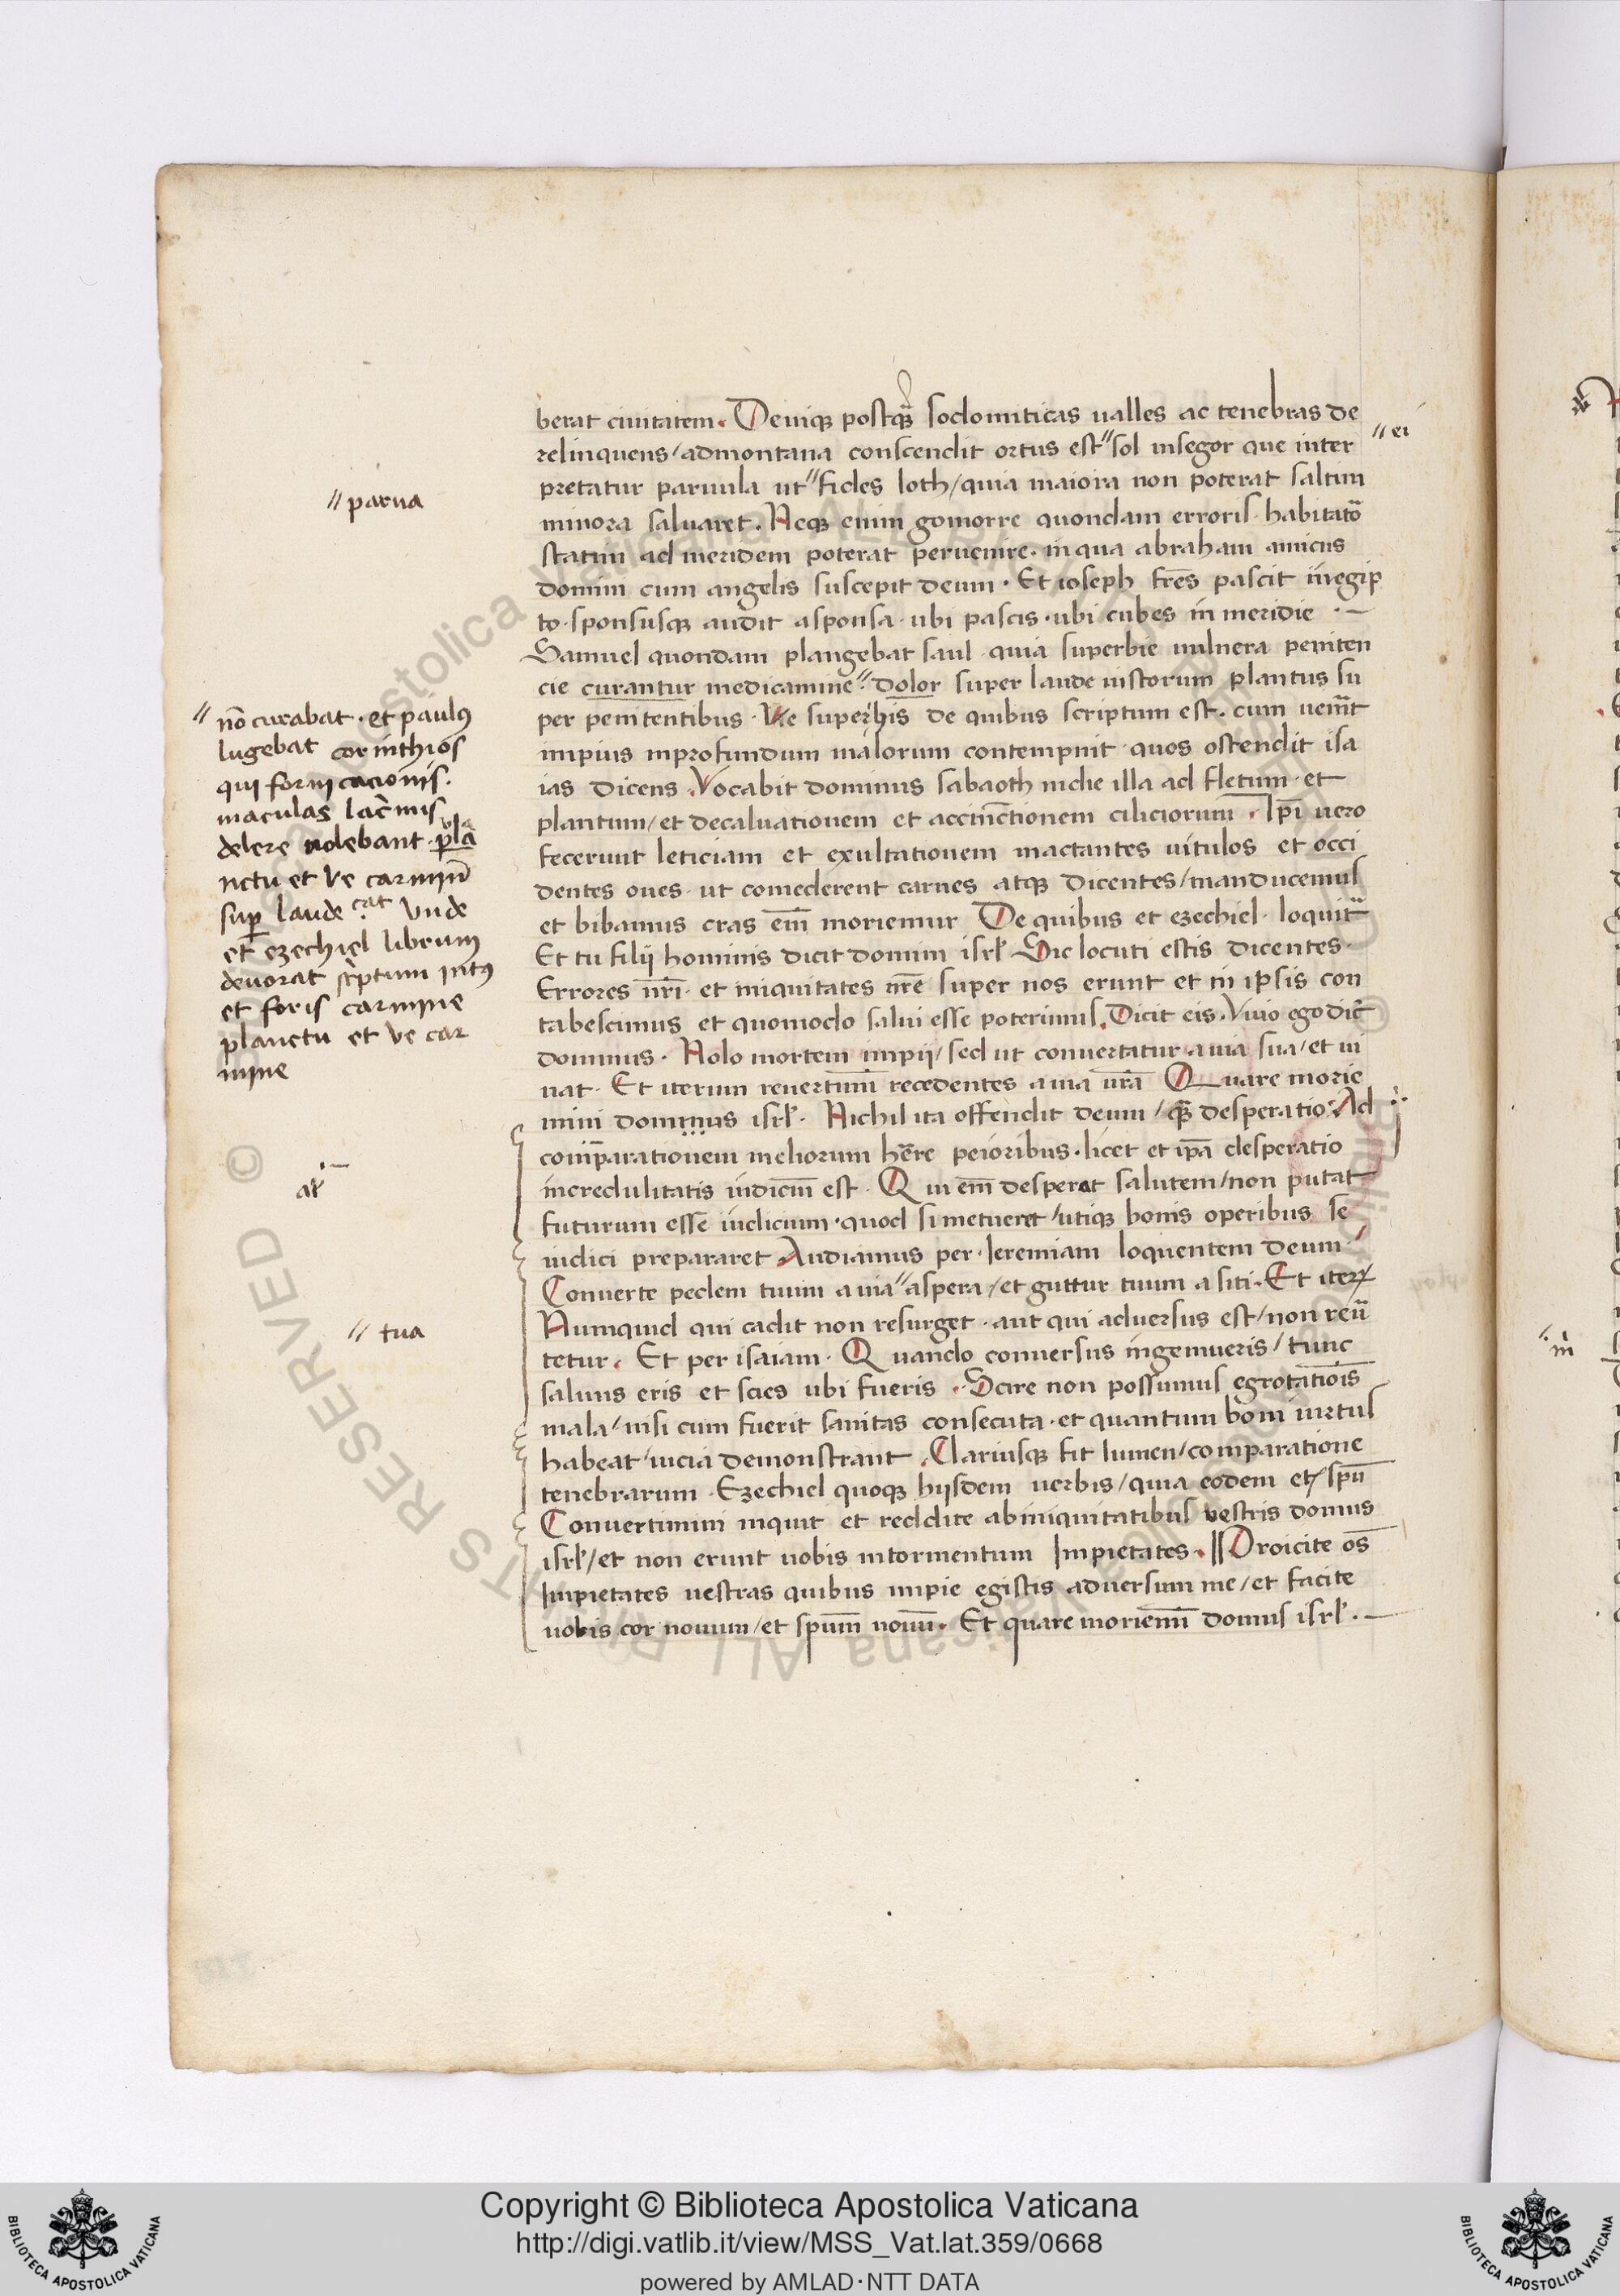 berat ciuitatem. Deniqꝫ postq̃ꝫ sodomiticas ualles ac tenebras de
relinquens/admontana conscendit ortus est〃sol insegor que inter
〃ei
pretatur paruula ut〃fides loth/quia maiora non poterat saltim
〃parua
minora saluaret. Neqꝫ enim gomorre quondam erroris habitatõ
statim ad meridem poterat peruenire. in qua abraham amicus
domini cum angelis suscepit deum. Et ioseph fr̃es pascit inegip
to. sponsusqꝫ audit asponsa. ubi pascis. ubi cubes in meridie .—
Samuel quondam plangebat saul quia superbie uulnera peniten
cie curantur medicamine〃 dolor super laude iustorum plantus su
per penitentibus. Ve superbis de quibus scriptum est. cum uenr̃it
impius inprofundum malorum contempnit quos ostendit isa
ias dicens. Vocabit dominus sabaoth indie illa ad fletum. et
plantum/et decaluationem et accinctionem ciliciorum. Ip̃i uero
fecerunt leticiam et exultationem mactantes uitulos et occi
dentes oues. ut comederent carnes atqꝫ dicentes/manducemus
et bibamus cras em̃ moriemur De quibus et ezechiel. loquit̃
Et tu filij hominis dicit domini isrl̃ Sic locuti estis dicentes.
Errores nr̃i. et iniquitates nr̃e super nos erunt et in ipsis con
tabescimus et quomodo salui esse poterimus. Dicit eis. Viuo ego dic̃t
dominus. Nolo mortem impij/sed ut conuertatur auia sua/et ui
uat. Et iterum reuertimĩ recedentes auia ur̃a Quare morie
mini dominus isrl̃. Nichil ita offendit deum/q̃ꝫ desperatio Ad
com̃parationem meliorum her̃e peioribus. licet et ip̃a desperatio
incredulitatis indiciũ est. Qui em̃ desperat salutem/non putat
futurum esse iudicium. quod si metueret/utiqꝫ bonis operibus se
iudici prepararet Audiamus per Ieremiam loquentem deum.
Conuerte pedem tuum auia〃aspera/et guttur tuum a siti. Et iteꝝ
Numquid qui cadit non resurget. aut qui aduersus est/non reũ
tetur. Et per isaiam. Quando conuersus ingemueris/tunc
saluus eris et scies ubi fueris. Scire non possumus egrotatiõis
mala/nisi cum fuerit sanitas consecuta. et quantum boni uirtus
habeat/uicia demonstrant. Clariusqꝫ fit lumen/comparatione
tenebrarum. Ezechiel quoqꝫ hijsdem uerbis/quia eodem et spũ
Conuertimini inquit et reddite abiniquitatibus vestris domus
isrl̃/et non erunt uobis intormentum Impietates. Proicite os̃
Impietates uestras quibus impie egistis aduersum me/et facite
uobis cor nouum/et spum̃ nouũ. Et quare moriemĩ domus isrl̃.—
〃nõ curabat. et paulꝰ
lugebat corinthios
qui fornicacionis.
maculas lac̃mis
delere nolebant. pla
nctu et ve carminũ
suꝑ laude erat vnde
et ezechiel librum
deuorat sc̃ptum intꝰ
et foris carmine
planctu et ve car
mine
al̃
〃tua
Copyright © Biblioteca Apostolica Vaticana
http://digi.vatlib.it/view/MSS_Vat.lat.359/0668
powered by AMLAD·NTT DATA
BIBLIOTECA APOSTOLICA VATICANA
BIBLIOTECA APOSTOLICA VATICANA